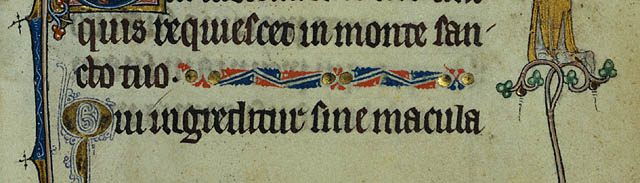 quis requiescet in monte san
cto tuo.
Qui ingreditur sine macula